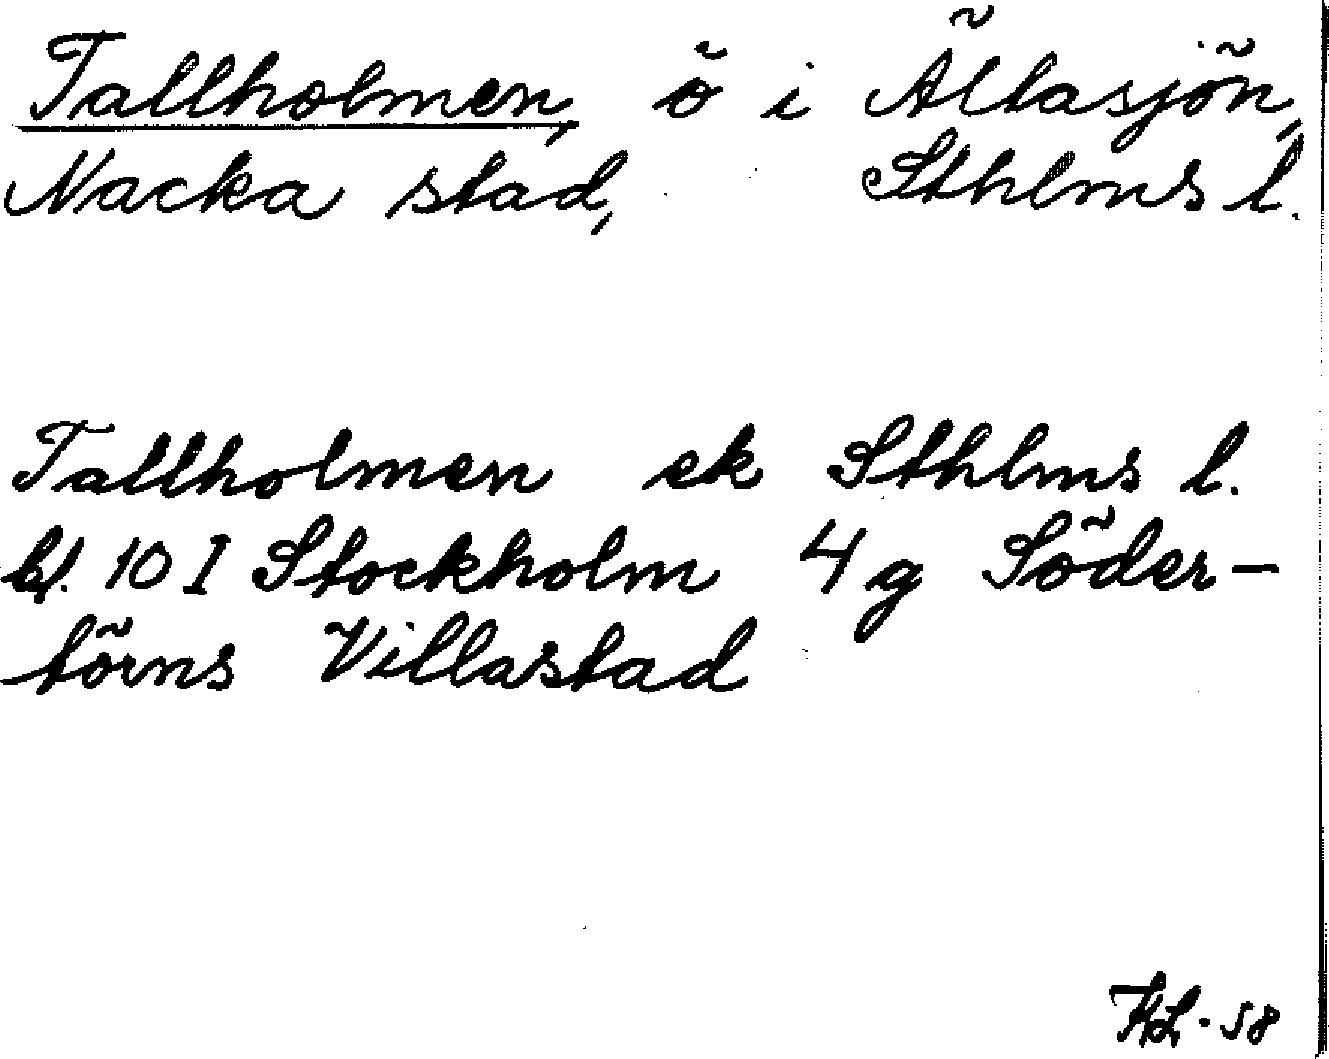 Tallholmen, ö i Ältasjön,
Nacka stad, Sthlms l.
Tallholmen ek Sthlms l.
bl. 10 I Stockholm 4 g Söder-
törns Villastad
HL-58